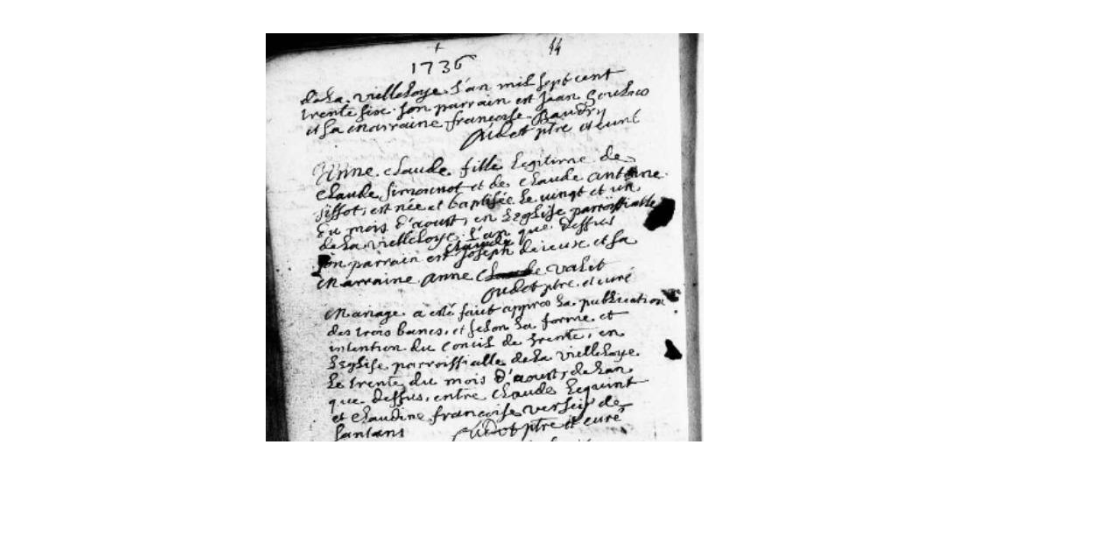 44
1736
dela vielleloye l'an mil sept cent
trente six son parrain est Jean
et sa marraine françoise Baudry
Oudot ptre et curé
Anne claude fille legitime de
claude simonnot et de claude antoine
jiffot, est née et baptisée le vingt et un
du mois d'aoust, en l'eglise parroissialle
dela vielleloye l'an que dessus
son parrain est claude joseph et sa
marraine anne valit
Oudot ptre et curé
Mariage a esté faict appres la publication
des trois bancs, et selon la forme et
intention du concil de trente, en
l'eglise parroissialle dela vielleloye
le trente du mois d'aoust, de l'an
que dessus, entre claude lequint
et claudine françoise de
santans Oudot ptre et curé